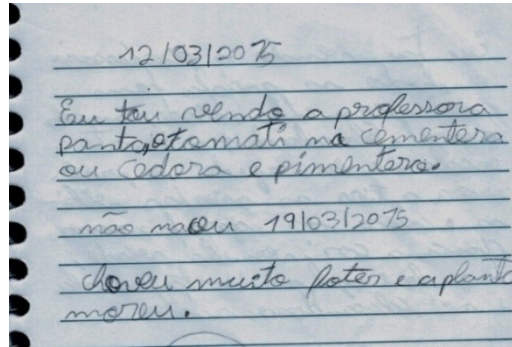 12/03/2015
Eu tou vendo a professora
panta, o tomati na cementera
ou cedora e pimentera.
não naceu 19/03/2015
choveu muito foter e a planta
moreu.